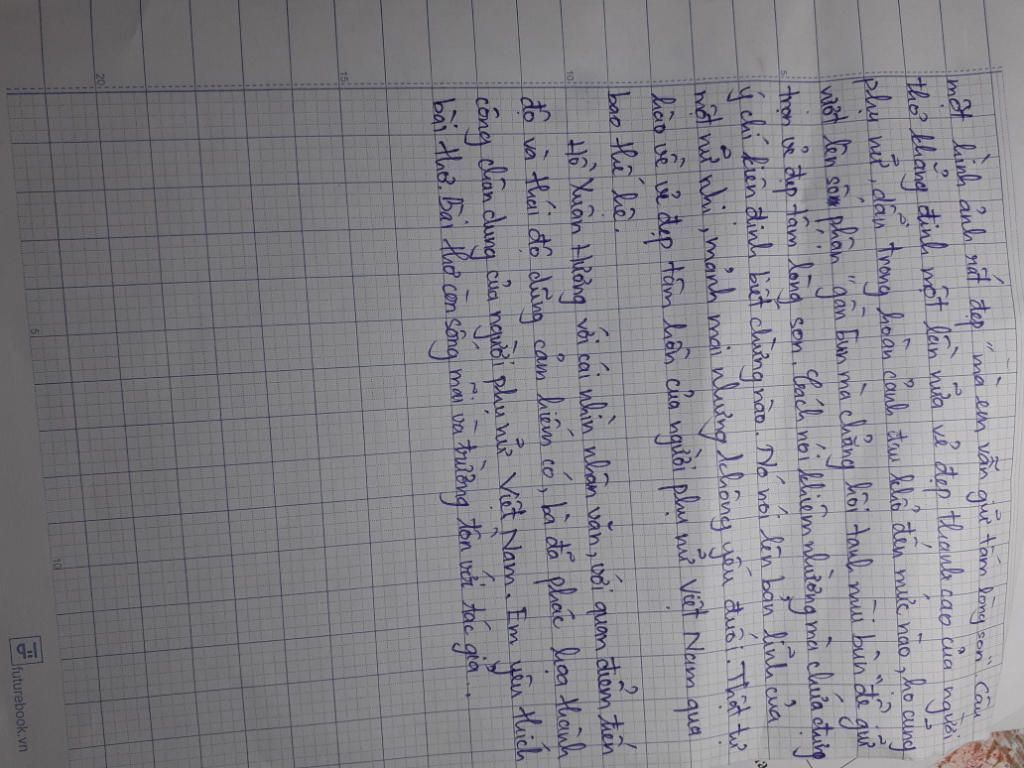 một hình ảnh rất đẹp "mà em vẫn giữ tấm lòng son". Câu
thơ khẳng định một lần nữa vẻ đẹp thanh cao của người
phụ nữ, dẫu trong hoàn cảnh đau khổ đến mức nào, họ cũng
vượt lên số phận "gần bùn mà chẳng hôi tanh mùi bùn" để giữ
trọn vẻ đẹp tấm lòng son. Cách nói khiêm nhường mà chứa đựng
ý chí kiên định biết chừng nào. Nó nói lên bản lĩnh của
một nữ nhi, mảnh mai nhưng không yếu đuối. Thật tự
hào về vẻ đẹp tâm hồn của người phụ nữ Việt Nam qua
bao thế hệ.
Hồ Xuân Hương với cái nhìn nhân văn, với quan điểm tiến
độ và thái độ dũng cảm hiếm có, bà đã phác họa thành
công chân dung của người phụ nữ Việt Nam. Em yêu thích
bài thơ. Bài thơ còn sống mãi và trường tồn với tác giả.
5
10
15
20
5
10
futurebook.vn